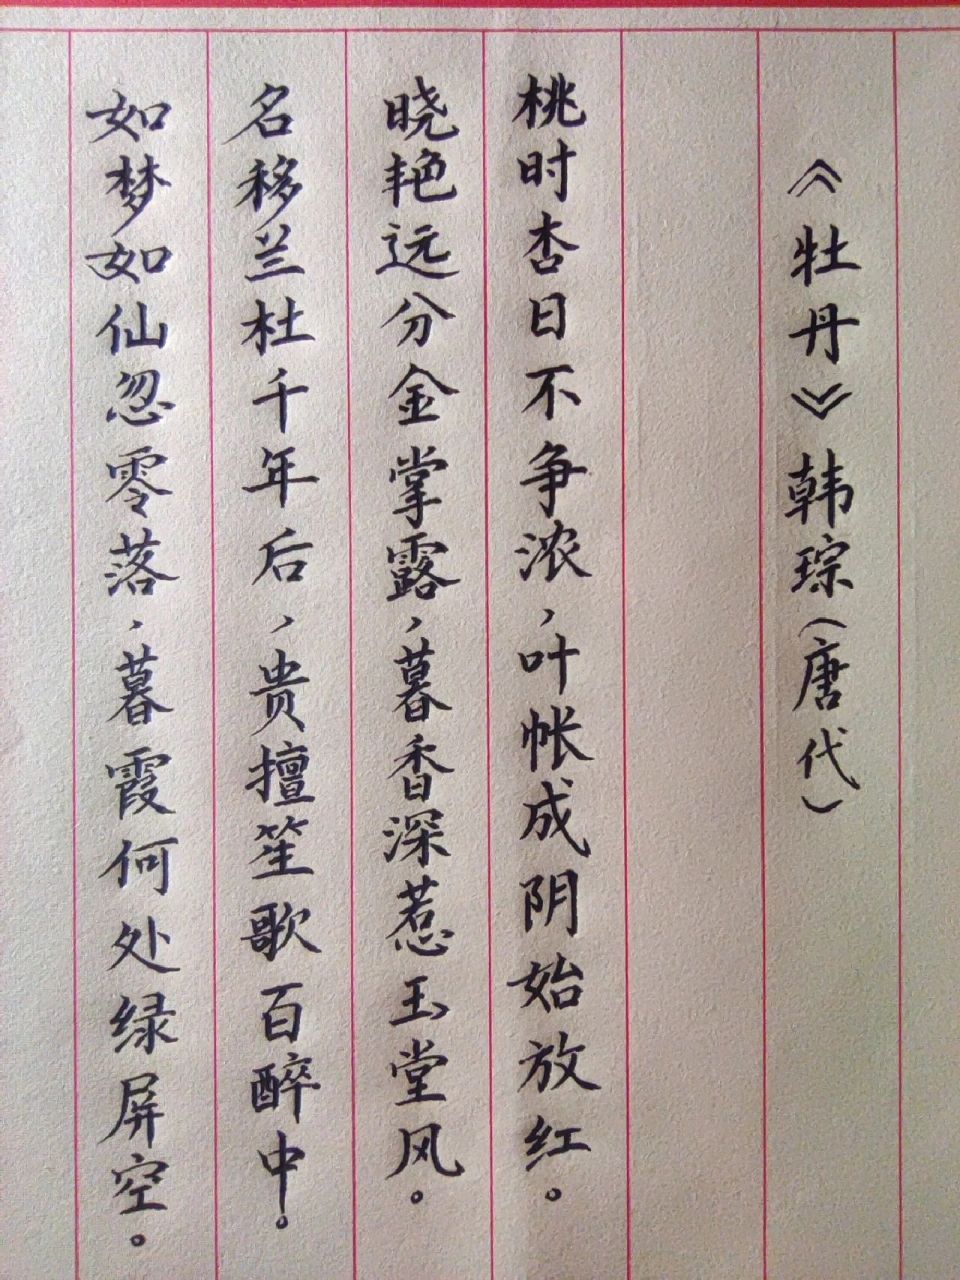 《牡丹》韩琮(唐代)
桃时杏日不争浓,叶帐成阴始放红。
晓艳远分金掌露,暮香深惹玉堂风。
名移兰杜千年后,贵擅笙歌百醉中。
如梦如仙忽零落,暮霞何处绿屏空。